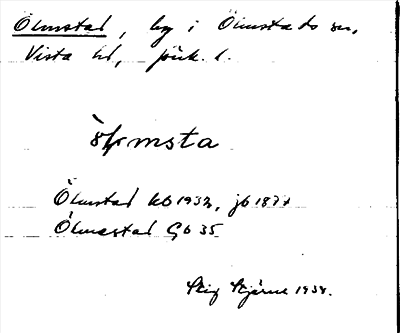 Ölmstad, by i Ölmstads sn,
Vista hd, jönk. l.
ö̀lmsta
Ölmstad kb 1932, jb 187
Ölmestad Gb 35
Stig Stjärne 1934.